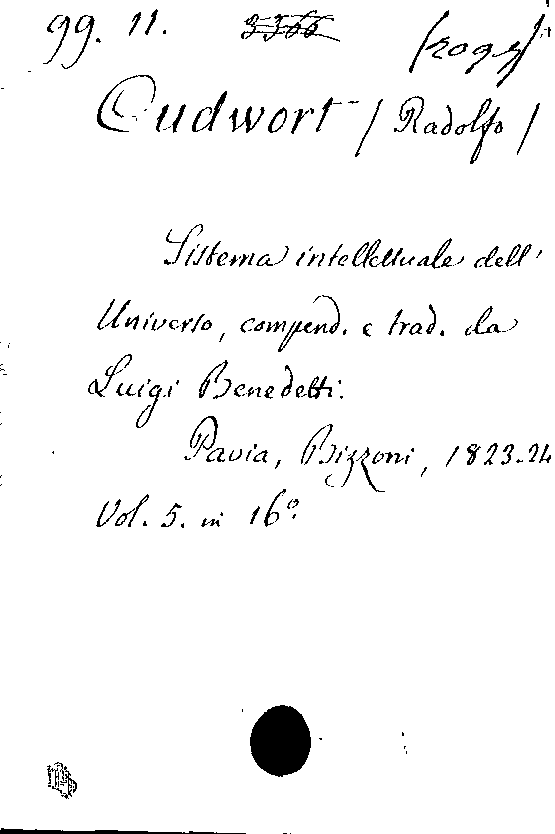 99. 11. 3366
Cudwort / Radolfo /
Sistema intellettuale dell'
Universo, compend. e trad. da
Luigi Benedetti.
Pavia, Bizzoni, 1823-24
Vol. 5. in 16º.